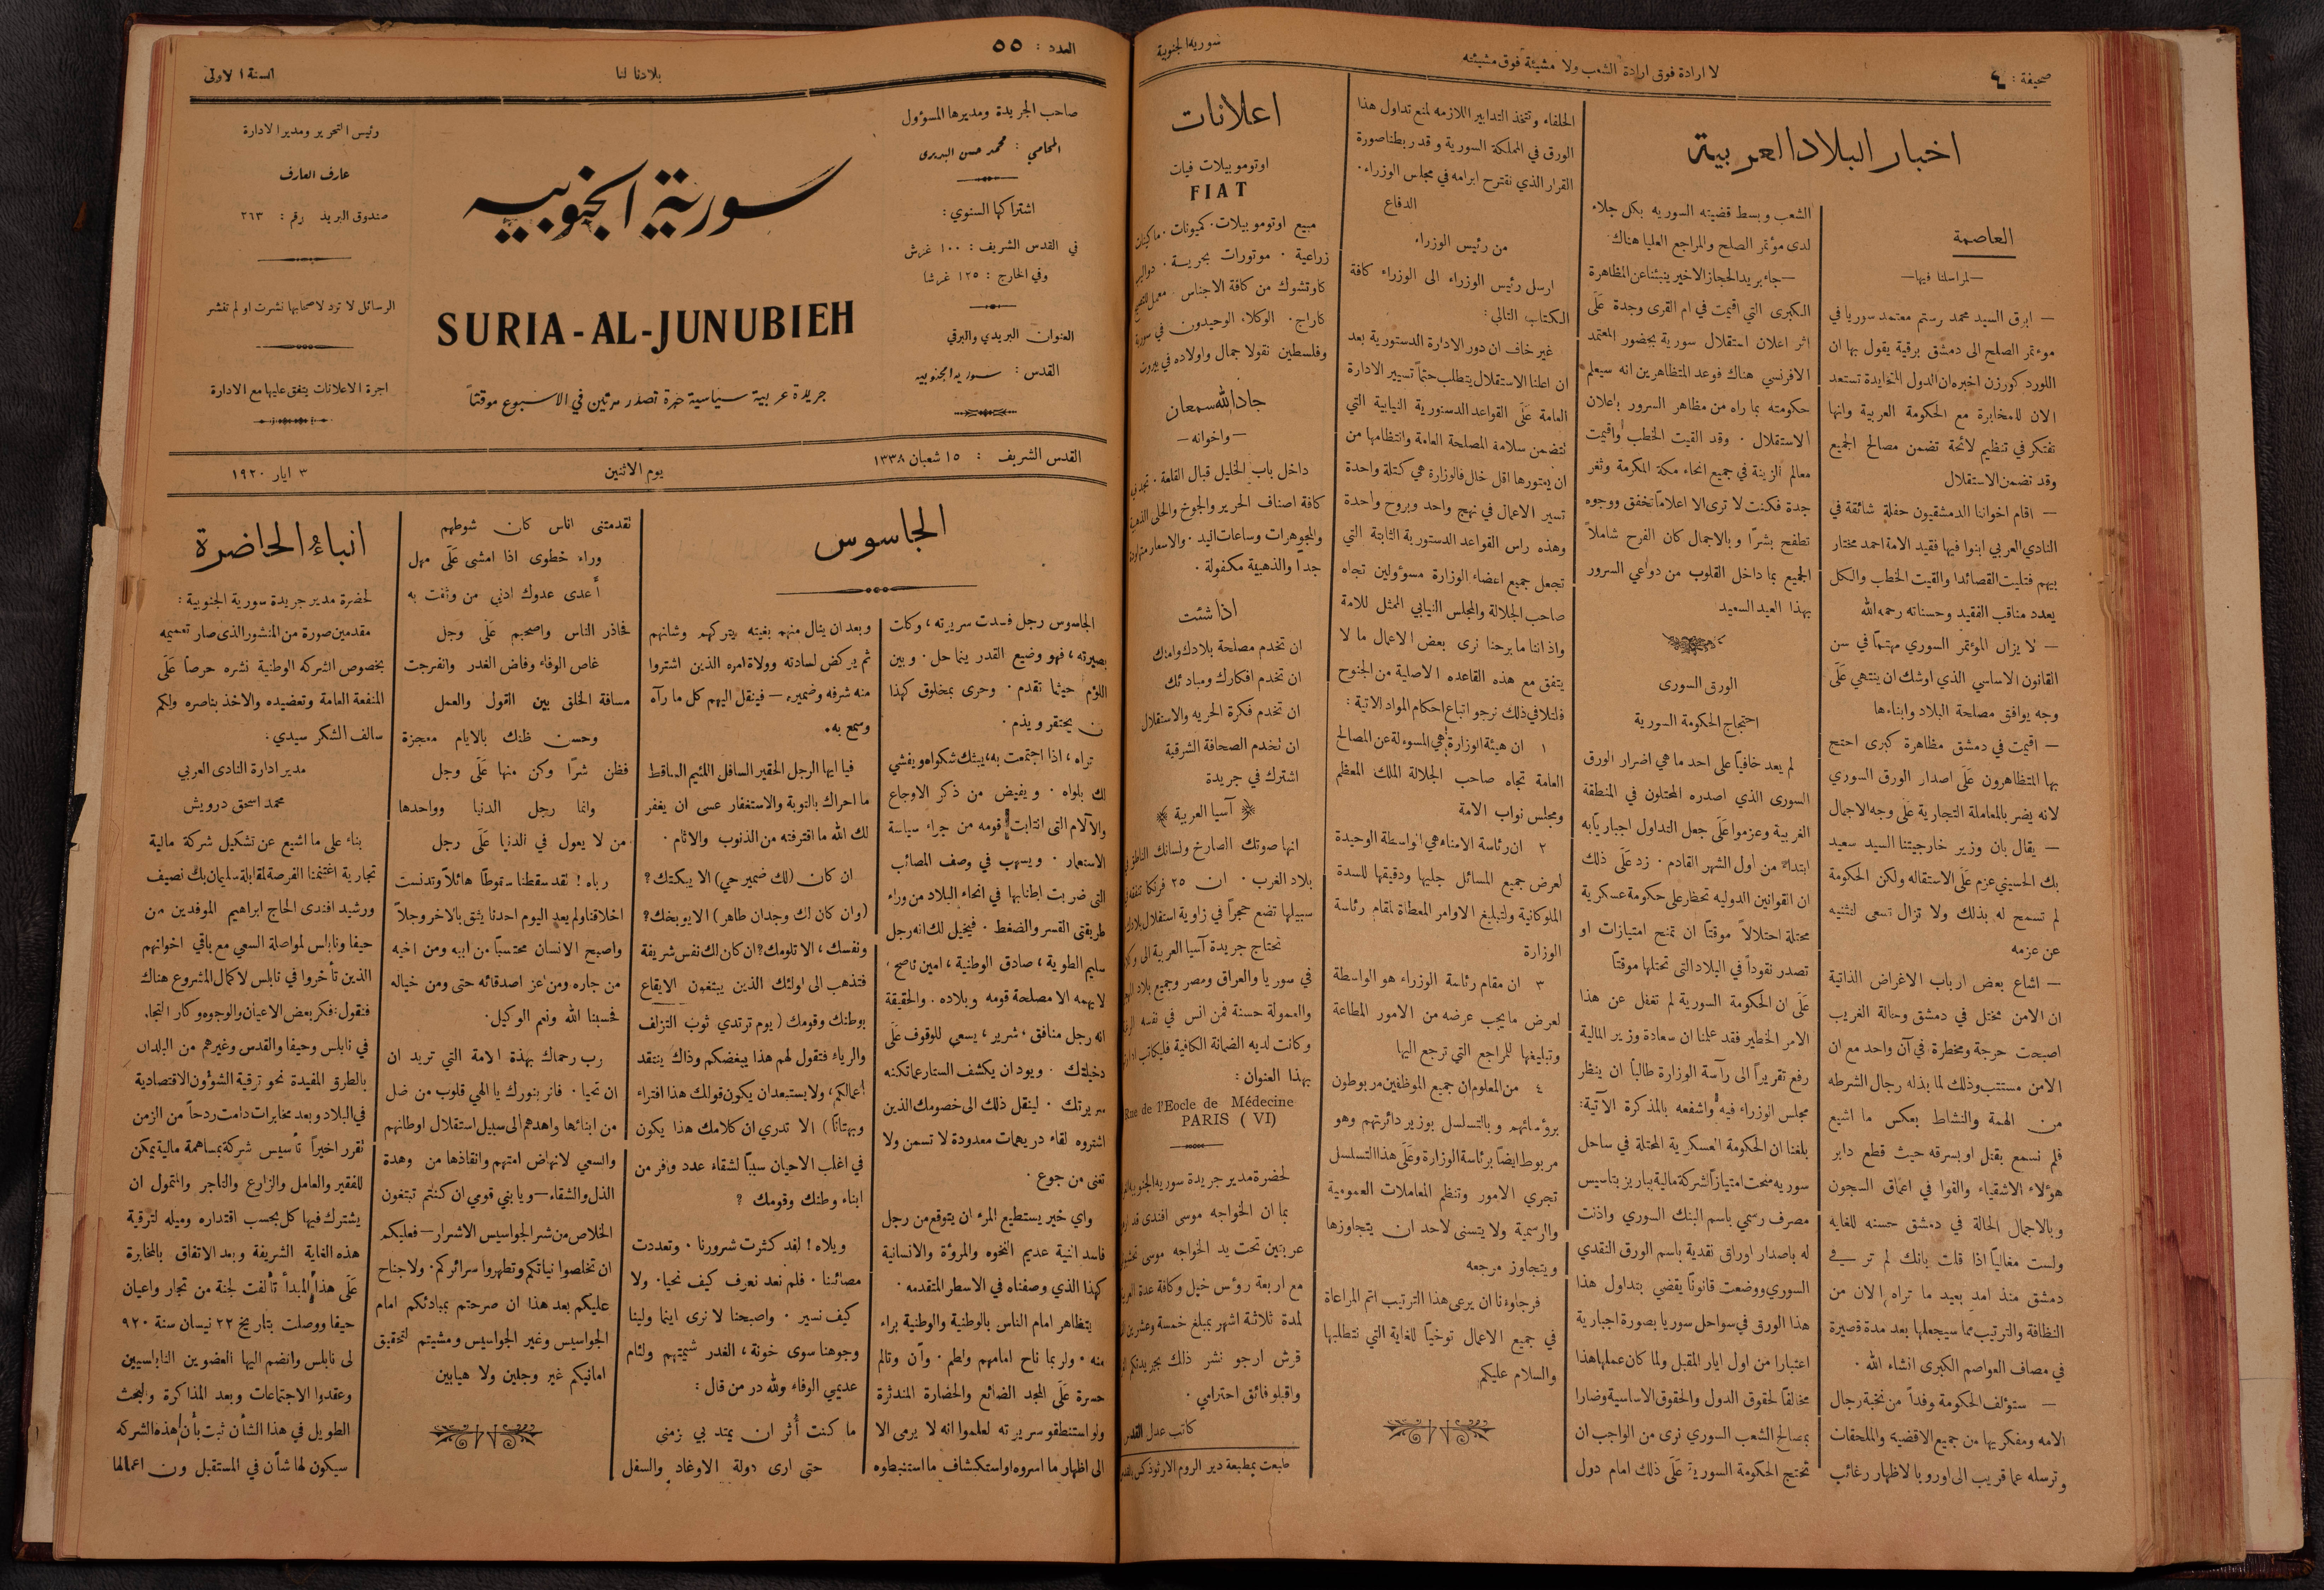 صحيفة : ٤
لا ارادة فوق ارادة الشعب ولا مشيئة فوق مشيئته
سورية الجنوبية
اخبار البلاد العربية
العاصمة
—لمراسلنا فيها—
— ابرق السيد محمد رستم معتمد سوريا في
موءتمر الصلح الى دمشق برقية يقول بها ان
اللورد كورزن اخبره ان الدول المتحايدة تستعد
الان للمخابرة مع الحكومة العربية وانها
تفتكر في تنظيم لائحة تضمن مصالح الجميع
وقد تضمن الاستقلال
— اقام اخواننا الدمشقيون حفلة شائقة في
النادي العربي ابنوا فيها فقيد الامة احمد مختار
بيهم فتليت القصائدا والقيت الخطب والكل
يعدد مناقب الفقيد وحسناته رحمه الله
— لا يزال الموءتمر السوري مهتما في سن
القانون الاساسي الذي اوشك ان ينتهي على
وجه يوافق مصلحة البلاد وابناءها
— اقيمت في دمشق مظاهرة كبرى احتج
بها المتظاهرون على اصدار الورق السوري
لانه يضر بالمعاملة التجارية على وجه الاجمال
— يقال بان وزير خارجيتنا السيد سعيد
بك الحسيني عزم على الاستقاله ولكن الحكومة
لم تسمح له بذلك ولا تزال تسعى لتثنيه
عن عزمه
— اشاع بعض ارباب الاغراض الذاتية
ان الامن مختل في دمشق وحالة الغريب
اصبحت حرجة ومخطرة في آن واحد مع ان
الامن مستتب وذلك لما بذله رجال الشرطه
من الهمة والنشاط بعكس ما اشيع
فلم نسمع بقتل او بسرقه حيث قطع دابر
هوءلاء الاشقياء والقوا في اعماق السجون
وبالاجمال الحالة في دمشق حسنه للغايه
ولست مغاليًا اذا قلت بانك لم تر في
دمشق منذ امد بعيد ما تراه الان من
النظافة والترتيب مما سيجعلها بعد مدة قصيرة
في مصاف العواصم الكبرى انشاء الله .
— ستؤلف الحكومة وفداً من نخبة رجال
الامه ومفكريها من جميع الاقضية والملحقات
وترسله عما قريب الى اوروبا لاظهار رغائب
الشعب وبسط قضيته السوريه بكل جلاء
لدى مؤتمر الصلح والمراجع العليا هناك
—جاء بريد الحجاز الاخير ينبئنا عن المظاهرة
الكبرى التي اقيمت في ام القرى وجدة على
اثر اعلان استقلال سورية بحضور المعتمد
الافرنسي هناك فوعد المتظاهرين انه سيعلم
حكومته بما راه من مظاهر السرور باعلان
الاستقلال . وقد القيت الخطب واقيمت
معالم الزينة في جميع انحاء مكة المكرمة وثغر
جدة فكنت لا ترى الا اعلامًا تخفق ووجوه
تطفح بشرًا وبالاجمال كان الفرح شاملاً
الجميع بما داخل القلوب من دواعي السرور
بهذا العيد السعيد
الورق السورى
احتجاج الحكومة السورية
لم يعد خافيًا على احد ما هي اضرار الورق
السورى الذي اصدره المحتلون في المنطقة
الغربية وعزموا على جعل التداول اجباريًا به
ابتداءً من اول الشهر القادم . زد على ذلك
ان القوانين الدوليه تحظر على حكومة عسكرية
محتلة احتلالاً موقتًا ان تمنح امتيازات او
تصدر نقوداً في البلاد التى تحتلها موقتًا
على ان الحكومة السورية لم تغفل عن هذا
الامر الخطير فقد علمنا ان سعادة وزير المالية
رفع تقريراً الى رآسة الوزارة طالبًا ان ينظر
مجلس الوزراء فيه واشفعه بالمذكرة الآتية :
بلغنا ان الحكومة العسكرية المحتلة في ساحل
سوريه منحت امتيازاً لشركة مالية بباريز بتاسيس
مصرف رسمي باسم البنك السوري واذنت
له باصدار اوراق نقدية باسم الورق النقدي
السوري ووضعت قانونًا يقضي بتداول هذا
هذا الورق في سواحل سوريا بصورة اجبارية
اعتبارا من اول ايار المقبل ولما كان عملها هذا
مخالفًا لحقوق الدول والحقوق الاساسية وضارا
بمصالح الشعب السوري نرى من الواجب ان
تحتج الحكومة السورية على ذلك امام دول
الحلفاء وتتخذ التدابير اللازمه لمنع تداول هذا
الورق في المملكة السورية وقد ربطنا صورة
القرار الذي نقترح ابرامه في مجلس الوزراء .
الدفاع
من رئيس الوزراء
ارسل رئيس الوزراء الى الوزراء كافة
الكتاب التالي :
غير خاف ان دور الادارة الدستورية بعد
ان اعلنا الاستقلال يتطلب حتمًا تسيير الادارة
العامة على القواعد الدستورية النيابية التي
تتضمن سلامة المصلحة العامة وانتظامها من
ان يعتورها اقل خال فالوزارة هي كتلة واحدة
تسير الاعمال في نهج واحد وبروح واحدة
وهذه راس القواعد الدستورية الثابتة التي
تجعل جميع اعضاء الوزارة مسوؤلين تجاه
صاحب الجلالة والمجلس النيابي الممثل للامة
واذ اننا ما برحنا نرى بعض الاعمال ما لا
يتفق مع هذه القاعده الاصلية من الجنوح
فلتلافي ذلك نرجو اتباع احكام المواد الاتية :
١ ان هيئة الوزارة هي المسوءلة عن المصالح
العامة تجاه صاحب الجلالة الملك المعظم
ومجلس نواب الامة
٢ ان رئاسة الامناء هي الواسطة الوحيدة
لعرض جميع المسائل جليها ودقيقها للسدة
الملوكانية ولتبليغ الاوامر المعطاة لمقام رئاسة
الوزارة
٣ ان مقام رئاسة الوزراء هو الواسطة
لعرض ما يجب عرضه من الامور المطاعة
وتبليغها للمراجع التي ترجع اليها
٤ من المعلوم ان جميع الموظفين مربوطون
برؤسائهم وبالتسلسل بوزير دائرتهم وهو
مربوط ايضًا برئاسة الوزارة وعلى هذا التسلسل
تجرى الامور وتنظم المعاملات العمومية
والرسمية ولا يتسنى لاحد ان يتجاوزها
ويتجاوز مرجعه
فرجاوءنا ان يرعى هذا الترتيب اتم المراعاة
في جميع الاعمال توخيًا للغاية التي نتطلبها
والسلام عليكم
اعلانات
اوتوموبيلات فيات
FIAT
مبيع اوتوموبيلات . كميونات . ماكينات
زراعية . موتورات بحرية .
كاوتشوك من كافة الاجناس .
كاراج . الوكلاء الوحيدون في سورية
وفلسطين نقولا جمال واولاده في بيروت
جاد الله سمعان
—واخوانه—
داخل باب الخليل قبال القلعة .
كافة اصناف الحرير والجوخ والحلى
والمجوهرات وساعات اليد . والاسعار
جداً والذهبية مكفولة .
اذا شئت
ان تخدم مصلحة بلادك وامتك
ان تخدم افكارك ومبادئك
ان تخدم فكرة الحريه والاستقلال
ان تخدم الصحافة الشرقية
اشترك في جريدة
آسيا العربية
انها صوتك الصارخ ولسانك
بلاد الغرب . ان ٢٥ فرنكا
سبيلها تضع حجراً في زاوية استقلال بلادك
تحتاج جريدة آسيا العربية الى
في سوريا والعراق ومصر وجميع بلاد
والعمولة حسنة فمن انس في نفسه
وكانت لديه الضمانة الكافية فليكاتب
بهذا العنوان :
Rue de l'Eocle de Médecine
PARIS ( VI )
لحضرة مدير جريدة سوريه الجنوبيه
بما ان الخواجه موسى افندى
عربتين تحت يد الخواجه موسى
مع اربعة رؤس خيل وكافة عدة
لمدة ثلاثة اشهر بمبلغ خمسة وعشرين
قرش ارجو نشر ذلك بجريدتكم
واقبلو فائق احترامي .
كاتب عدل القدس
طبعت بمطبعة دير الروم الارثوذكس
العدد : ٥٥
بلادنا لنا
السنة الاولى
صاحب الجريدة ومديرها المسؤول
المحامي : محمد حسن البديرى
اشتراكها السنوي :
في القدس الشريف : ١٠٠ غرش
وفي الخارج : ١٢٥ غرشا
العنوان البريدي والبرقي
القدس : سورية الجنوبيه
سورية الجنوبيه
SURIA-AL-JUNUBIEH
جريدة عربية سياسية حرة تصدر مرتين في الاسبوع موقتاً
رئيس التحرير ومدير الادارة
عارف العارف
صندوق البريد رقم : ٢٦٣
الرسائل لا ترد لاصحابها نشرت او لم تنشر
اجرة الاعلانات يتفق عليها مع الادارة
القدس الشريف : ١٥ شعبان ١٣٣٨
يوم الاثنين
٣ ايار ١٩٢٠
الجاسوس
الجاسوس رجل فسدت سريرته ، وكات
بصيرته ، فهو وضيع القدر ينما حل . وبين
اللؤم حيثما تقدم . وحرى بمخلوق كهذا
ن يحتقر ويذم .
تراه ، اذا اجتمعت به ، يبثك شكواه ويفشي
لك بلواه . ويفيض من ذكر الاوجاع
والآلام التى انتابت قومه من جراء سياسة
الاستعمار . ويسهب في وصف المصائب
التى ضربت اطنابها في انحاء البلاد من وراء
طريقتى القسر والضغط . فيخيل لك انه رجل
سليم الطوية ، صادق الوطنية ، امين ناصح ،
لا يهمه الا مصلحة قومه وبلاده . والحقيقة
انه رجل منافق ، شرير ، يسعى للوقوف على
دخيلتك . ويود ان يكشف الستار عما تكنه
سريرتك . لينقل ذلك الى خصومك الذين
اشتروه لقاء دريهمات معدودة لا تسمن ولا
تغنى من جوع .
واي خير يستطيع المرء ان يتوقع من رجل
فاسد النية عديم النخوه والمروءة والانسانية
كهذا الذي وصفناه في الاسطر المتقدمه .
يتظاهر امام الناس بالوطنية والوطنية براء
منه . ولربما ناح امامهم ولطم . وأن وتالم
حسرة على المجد الضائع والحضارة المندثرة
ولو استنطقو سريرته لعلموا انه لا يرمى الا
الى اظهار ما اسروه او استكبشاف ما استبطوه
وبعد ان ينال منهم بغيته يتركهم وشانهم
ثم يركض لسادته وولاة امره الذين اشتروا
منه شرفه وضميره — فينقل اليهم كل ما رآه
وسمع به .
فيا ايها الرجل الحقير السافل اللئيم الساقط
ما احراك بالتوبة والاستغفار عسى ان يغفر
لك الله ما اقترفته من الذنوب والاثام .
ان كان (لك ضمير حي) الا يبكتك ؟
(وان كان لك وجدان طاهر) الا يوبخك ؟
ونفسك ، الا تلومك ؟ ان كان لك نفس شريفة
فتذهب الى اولئك الذين يبتغون الايقاع
بوطنك وقومك (يوم ترتدي ثوب التزلف
والرياء فتقول لهم هذا يبغضكم وذاك ينتقد
اعمالكم ، ولا يستبعد ان يكون قولك هذا افتراء
وبهتانًا ) الا تدري ان كلامك هذا يكون
في اغلب الاحيان سببًا لشقاء عدد وافر من
ابناء وطنك وقومك ؟
ويلاه ! لقد كثرت شرورنا . وتعددت
مصائبنا . فلم نعد نعرف كيف نحيا . ولا
كيف نسير . واصبحنا لا نرى اينما ولينا
وجوهنا سوى خونة ، الغدر شيمتهم ولئام
عديمي الوفاء ولله در من قال :
ما كنت أُثر ان يمتد بي زمنى
حتى ارى دولة الاوغاد والسفل
تقدمتنى اناس كان شوطهم
وراء خطوى اذا امشى على مهل
أعدى عدوك ادنى من وثقت به
فحاذر الناس واصحبهم على وجل
غاص الوفاء وفاض الغدر وانفرجت
مسافة الخلق بين القول والعمل
وحسن ظنك بالايام معجزة
فظن شرًا وكن منها على وجل
وانما رجل الدنيا وواحدها
من لا يعول في الدنيا على رجل
رباه ! لقد سقطنا سقوطًا هائلاً وتدنست
اخلاقنا ولم يعد اليوم احدنا يثق بالاخر وجلاً
واصبح الانسان محتسبًا من ابيه ومن اخيه
من جاره ومن اعز اصدقائه حتى ومن خياله
فحسبنا الله ونعم الوكيل .
رب رحماك بهذة الامة التي تريد ان
ان تحيا . فانر بنورك يا الهي قلوب من ضل
من ابنائها واهدهم الى سبيل استقلال اوطانهم
والسعي لانهاض امتهم وانقاذها من وهدة
الذل والشقاء — ويا بني قومي ان كنتم تبتغون
الخلاص من شر الجواسيس الاشرار — فعليكم
ان تخلصوا نياتكم وتطهروا سرائركم . ولا جناح
عليكم بعد هذا ان صرحتم بمبادئكم امام
الجواسيس وغير الجواسيس ومشيتم لتحقيق
امانيكم غير وجلين ولا هيابين
انباءُ الحاضرة
لحضرة مدير جريدة سورية الجنوبية :
مقدمين صورة من المنشور الذى صار تعميمه
بخصوص الشركه الوطنية نشره حرصاً على
المنفعة العامة وتعضيده والاخذ بناصره ولكم
سالف الشكر سيدي :
مدير ادارة النادى العربي
محمد اسحق درويش
بناء على ما اشيع عن تشكيل شركة مالية
تجارية اغتنمنا الفرصة لمقابلة سليمان بك نصيف
ورشيد افندى الحاج ابراهيم الموفدين من
حيفا ونابلس لمواصلة السعي مع باقي اخوانهم
الذين تأخروا في نابلس لاكمال المشروع هناك
فنقول : فكر بعض الاعيان والوجوه وكار التجار
في نابلس وحيفا والقدس وغيرهم من البلدان
بالطرق المفيدة نحو ترقية الشؤون الاقتصادية
في البلاد وبعد مخابرات دامت ردحاً من الزمن
تقرر اخيراً تأسيس شركة بمساهمة مالية يمكن
للفقير والعامل والزارع والتاجر والمتمول ان
يشترك فيها كل بحسب اقتداره وميله لترقية
هذه الغاية الشريفة وبعد الاتفاق بالمخابرة
على هذا المبدأ تألفت لجنة من تجار واعيان
حيفا ووصلت بتاريخ ٢٢ نيسان سنة ٩٢٠
لى نابلس وانضم اليها العضوين النابلسيين
وعقدوا الاجتماعات وبعد المذاكرة والبحث
الطويل في هذا الشأن ثبت بأن هذه الشركه
سيكون لها شأن في المستقبل ون اعمالها